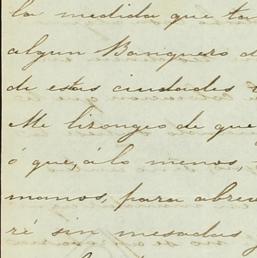 la medida que ta
algun Banquero d
de estas ciudades
Me lisongeo de que
ó que, á lo menos,
manos, para abre
ré sin mesadas